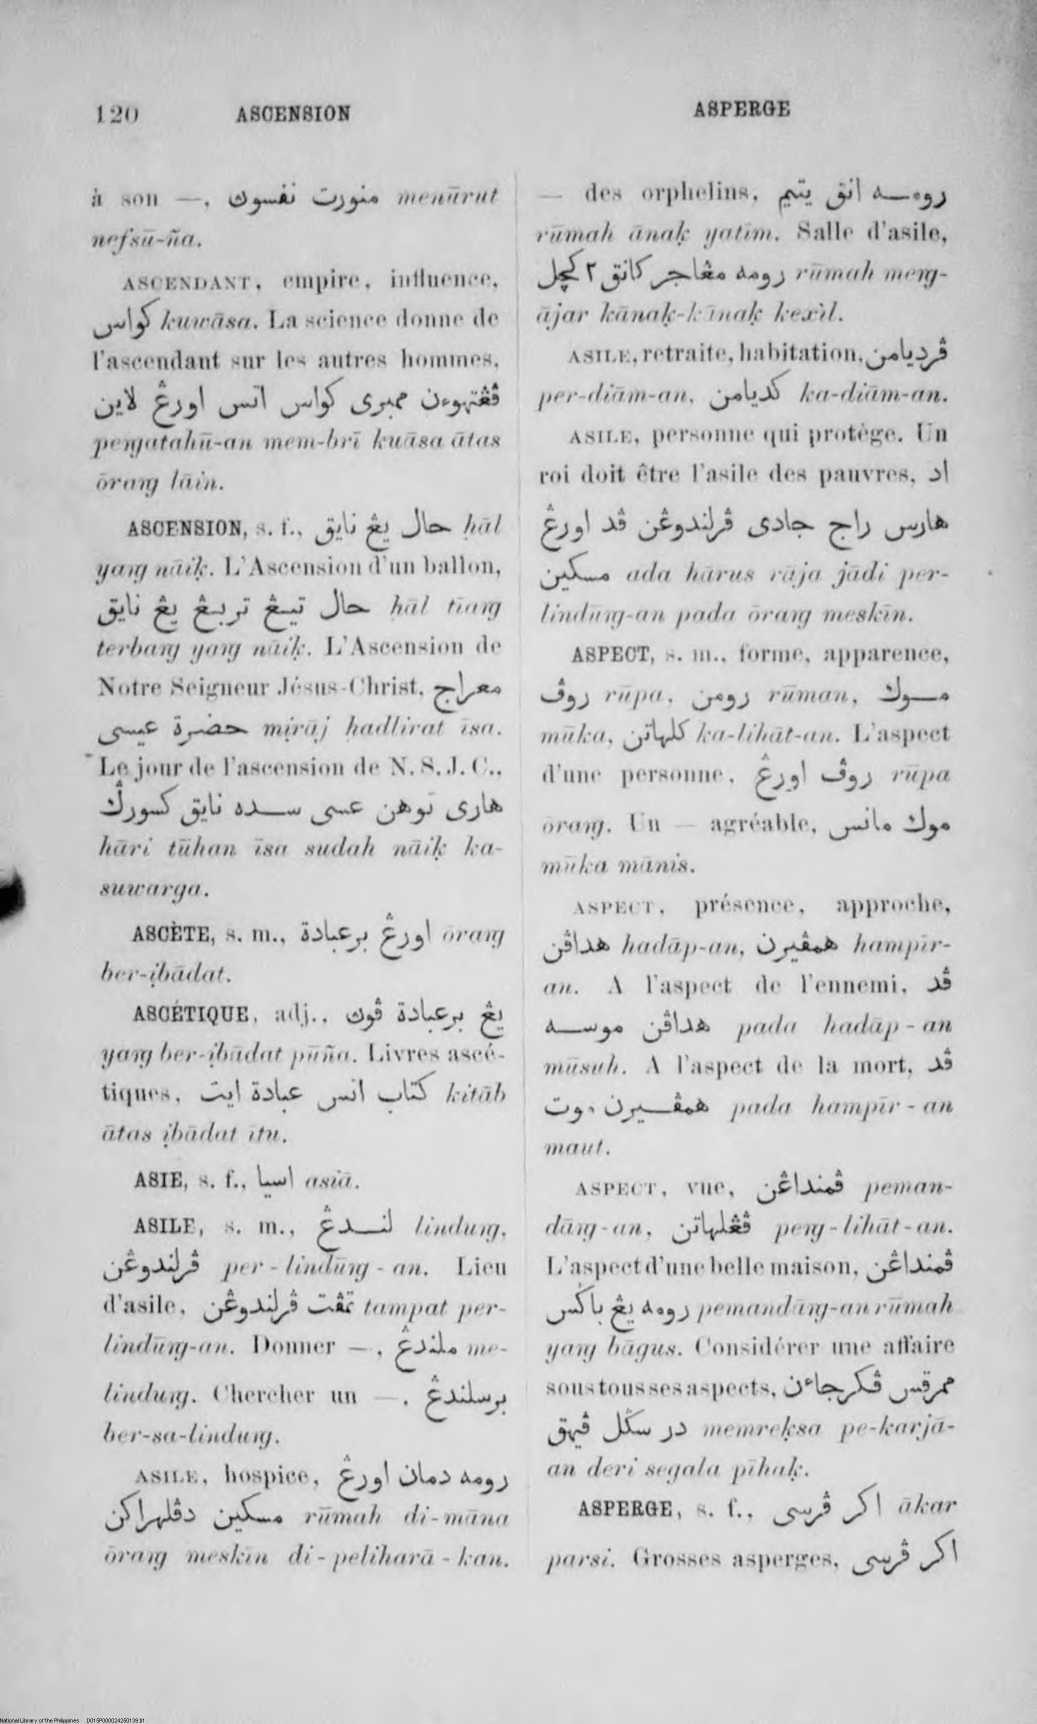 120 ASCENSION
à son —, منورت نفسوك menūrut
nefsū-ña.
ASCENDANT, empire, influence,
كواس kuwāsa. La science donne de
l'ascendant sur les autres hommes,
ڤڠتهوءن ممبرى كواس اتس اورڠ لاين
peṉgatahū-an mem-brī kuāsa ātas
ōraṉg lāin.
ASCENSION, s. f., حال يڠ نايق ḥāl
yaṉg nāiḳ. L'Ascension d'un ballon,
حال تيڠ تربڠ يڠ نايق ḥāl tīaṉg
terbaṉg yaṉg nāiḳ. L'Ascension de
Notre Seigneur Jésus-Christ, معراج
حضرة عيسى mịrāj ḥadlirat īsa.
Le jour de l'ascension de N. S. J. C.,
هارى توهن عسى سده نايق كسورڬ
hāri tūhan īsa sudah nāiḳ ka-
suwarga.
ASCÈTE, s. m., اورڠ برعبادة ōraṉg
ber-ịbādat.
ASCÉTIQUE, adj., يڠ برعبادة ڤوك
yaṉg ber-ịbādat pūña. Livres ascé-
tiques, كتاب اتس عبادة ايت kitāb
ātas ịbādat ītu.
ASIE, s. f., اسيا asiā.
ASILE, s. m., لندڠ linduṉg,
ڤرلندوڠن per-lindūṉg-an. Lieu
d'asile, تمڤت ڤرلندوڠن tampat per-
lindūṉg-an. Donner —, ملندڠ me-
linduṉg. Chercher un —, برسلندڠ
ber-sa-linduṉg.
ASILE, hospice, رومه دمان اورڠ
مسكين دڤلهراكن rūmah di-māna
ōraṉg meskīn di-peliharā-kan.
ASPERGE
— des orphelins, رومه انق يتيم
rūmah ānaḳ yatīm. Salle d'asile,
رومه مڠاجر كانق ٢ كچل rūmah meṉg-
ājar kānaḳ-kānaḳ kexil.
ASILE, retraite, habitation, ڤرديامن
per-diām-an, كديامن ka-diām-an.
ASILE, personne qui protége. Un
roi doit être l'asile des pauvres, اد
هارس راج جادى ڤرلندوڠن ڤد اورڠ
مسكين ada hārus rāja jādi per-
lindūṉg-an pada ōraṉg meskīn.
ASPECT, s. m., forme, apparence,
روڤ rūpa, رومن rūman, موك
mūka, كلهاتن ka-lihāt-an. L'aspect
d'une personne, روڤ اورڠ rūpa
ōraṉg. Un — agréable, موك مانس
mūka mānis.
ASPECT, présence, approche,
هداڤن hadāp-an, همڤيرن hampīr-
an. A l'aspect de l'ennemi, ڤد
هداڤن موسه pada hadāp-an
mūsuh. A l'aspect de la mort, ڤد
همڤيرن موت pada hampīr-an
maut.
ASPECT, vue, ڤمنداڠن peman-
dāṉg-an, ڤڠلهاتن peṉg-lihāt-an.
L'aspect d'une belle maison, ڤمنداڠن
رومه يڠ باڬس pemandāṉg-an rūmah
yaṉg bāgus. Considérer une affaire
sous tous ses aspects, ممرقس ڤكرجاءن
در سڬل ڤيهق memreḳsa pe-karjā-
an deri segala pīhaḳ.
ASPERGE, s. f., اكر ڤرسى ākar
parsi. Grosses asperges, اكر ڤرسى
National Library of the Philippines